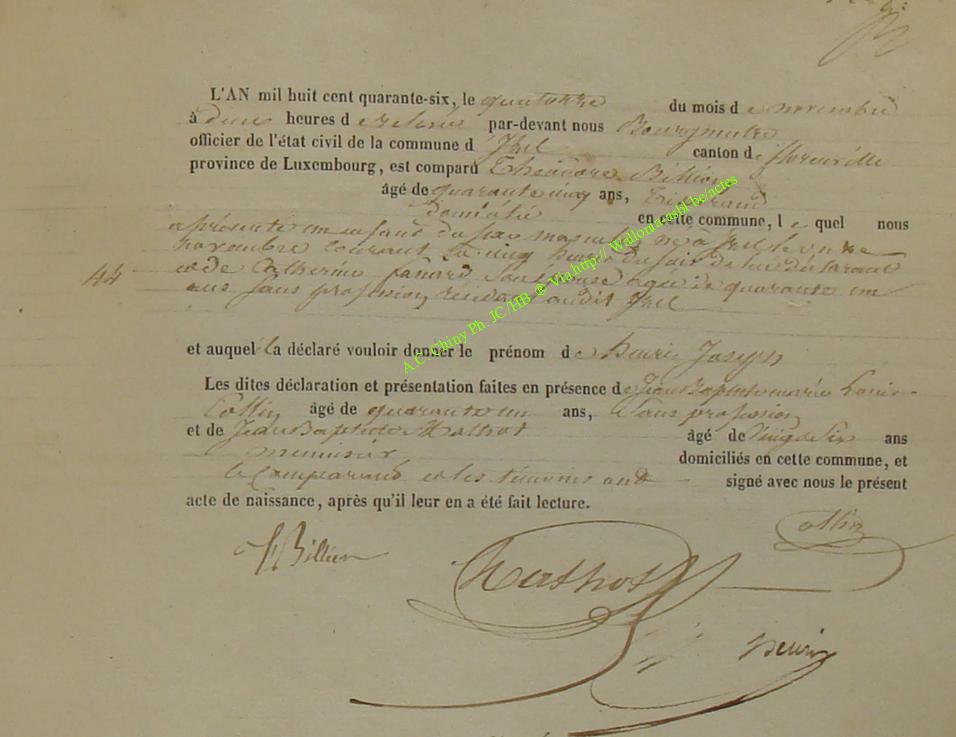 L'AN mil huit cent quarante-six, le quatorze du mois de novembre
à deux heures de relevée par-devant nous Bourgmestre
officier de l'état civil de la commune d'Izel canton de florenville
province de Luxembourg, est comparu Théodore Billion
âgé de quarante cinq ans, Tisserand
domicilié en cette commune, lequel nous
a présenté un enfant du sexe masculin né à Izel le onze
novembre courant à cinq heures du fait de lui déclarant
44 et de Catherine panard son épouse âgée de quarante un
ans sans profession, résidant audit Izel
et auquel il a déclaré vouloir donner le prénom de henri Joseph
Les dites déclaration et présentation faites en présence de Jean Baptiste marie Louis
Collin âgé de quarante un ans, Sans profession
et de Jean Baptiste Hathot âgé de vingt six ans
menuisier domiciliés en cette commune, et
le Comparant et les témoins ont signé avec nous le présent
acte de naissance, après qu'il leur en a été fait lecture.
Collin
Billion
Hathot
henri
A.C. Chiny Ph. JC/HB ® Via http://Wallonia.mbl.be/actes